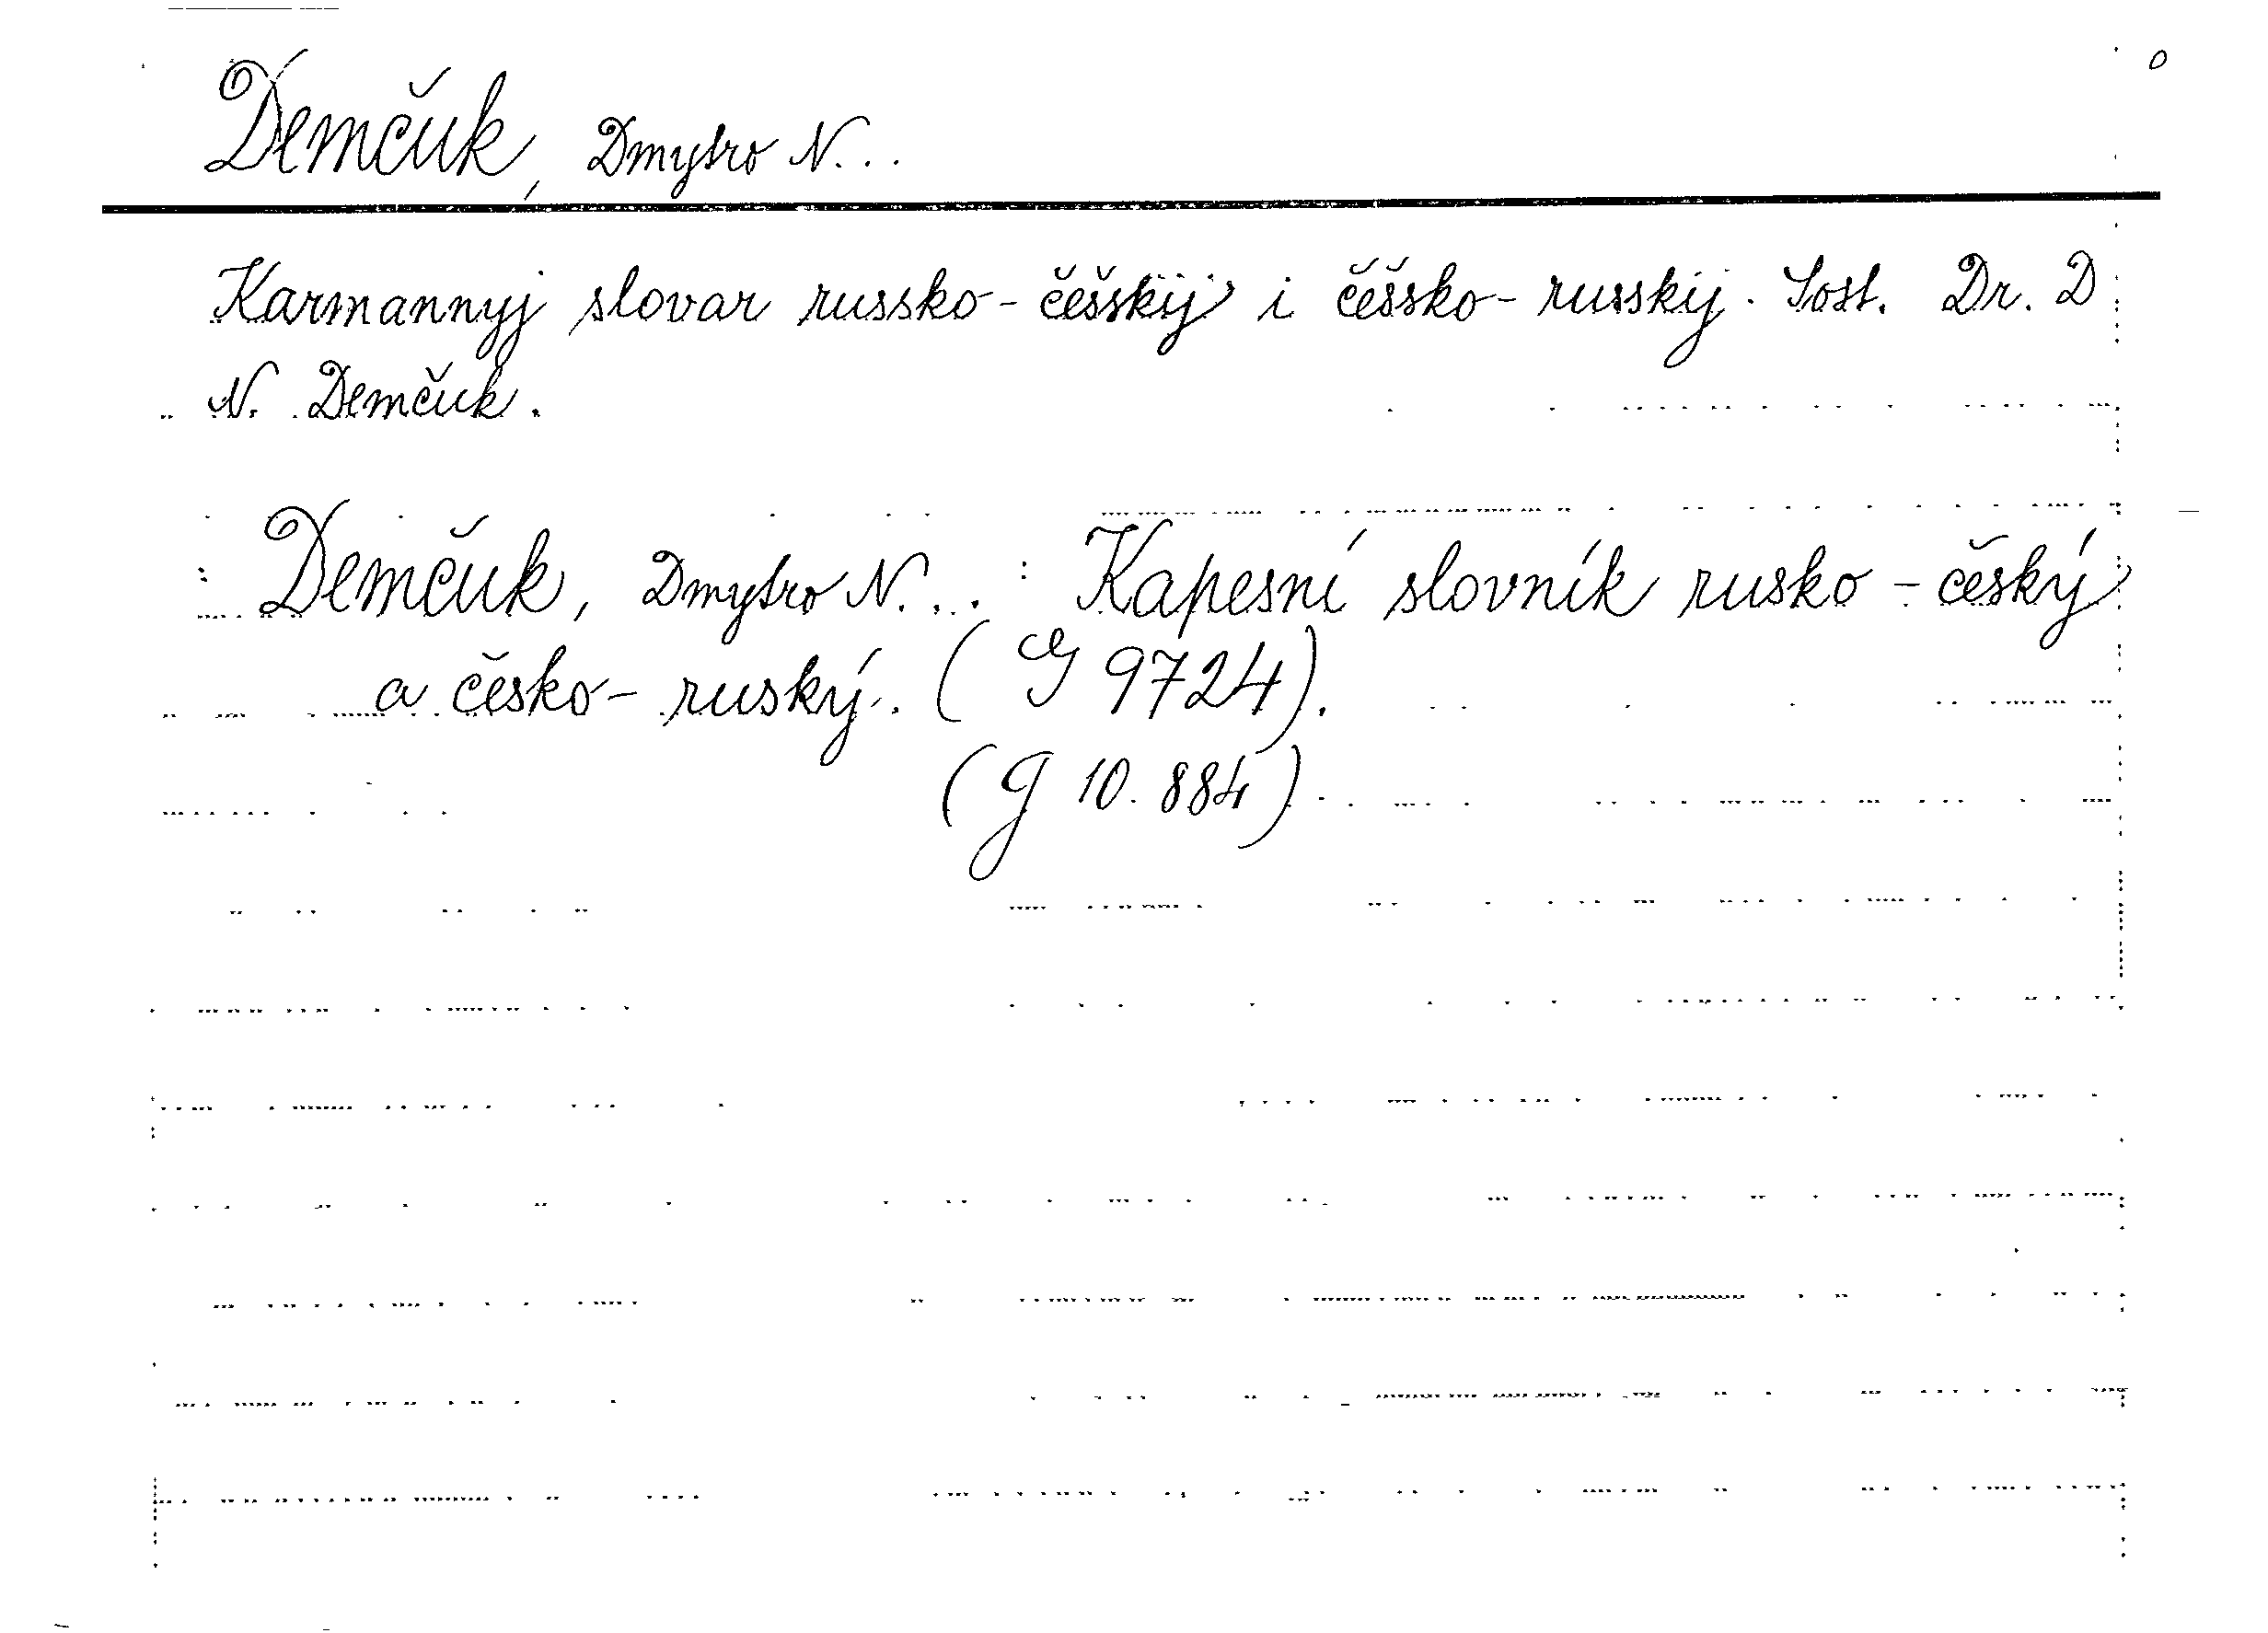 Demčuk, Dmytro N...
Karmannyj slovar russko-češskij i češsko-russkij. Sost. Dr. D.
N. Demčuk.
Demčuk, Dmytro N...: Kapesní slovník rusko-český
a česko-ruský. (G 9724).
(G 10.884).